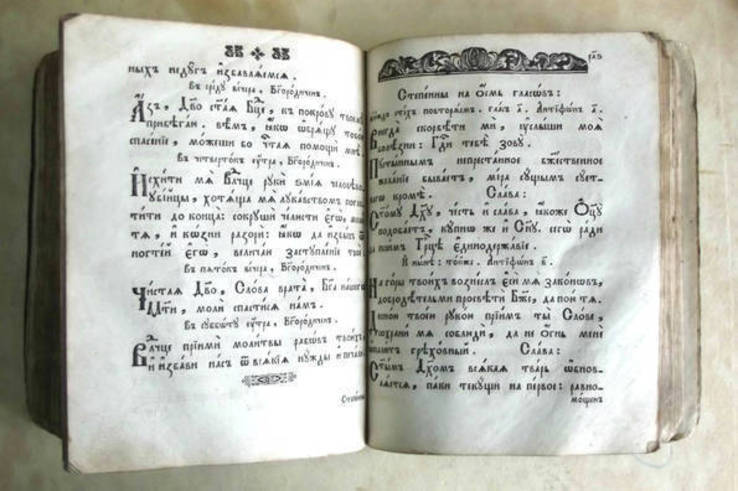 ныхъ недугъ избавляемся.
Въ среду вечера, Бг҃ородиченъ.
Азъ, Дв҃о ст҃ая Бц҃е, къ покрову твоему
прибѣгаю. вѣмъ, ꙗкѡ ѡбрящу тобою
спасенїе, можеши бо чт҃ая помощи мнѣ.
Въ четвертокъ оутра, Бг҃ородиченъ.
Исхити мя Вл҃чце руки ѕмїя человѣко
убїйцы, хотяща мя лукавствомъ погло
тити до конца: сокруши челюсти єгѡ, молю
тя, и кѡзни разори: ꙗкѡ да избывъ
ногтей єгѡ, величаю заступленїе твое.
Въ пятокъ вечера, Бг҃ородиченъ.
Чистая Дв҃о, Слова врата, Бг҃а нашего
Мт҃и, моли спастися намъ.
Въ субботу оутра, Бг҃ородиченъ.
Вл҃чце прїими молитвы рабовъ твоихъ,
и избави насъ ѿ всякїя нужды и печали.
Степенны
Степенны на ѻсмь гласѡвъ:
стїхъ повторяемъ. гласъ а҃. Антїфѡнъ а҃.
Внегда скорбѣти ми, оуслыши моя
болѣзни: Гд҃и тебѣ зову.
Пустыннымъ непрестанное бж҃ественное
желанїе бываетъ, мїра сущымъ сует-
наго кромѣ. Слава:
Ст҃ому Дх҃у, честь и слава, ꙗкоже Ѻц҃у
подобаетъ, купно же и Сн҃у. сегѡ ради
да поимъ Трц҃ѣ Єдинодержавїе.
И нынѣ: тойже. Антїфѡнъ в҃.
На горы твоихъ вознеслъ єси мя законѡвъ,
добродѣтельми просвѣти Бж҃е, да пою тя.
Десною твоею рукою прїимъ ты Слове,
сохрани мя соблюди, да не ѻгнь мене
ѡпалитъ грѣховный. Слава:
Ст҃ымъ Дх҃омъ всякая тварь ѡбнов-
ляется, паки текущи на первое: равно-
мощенъ